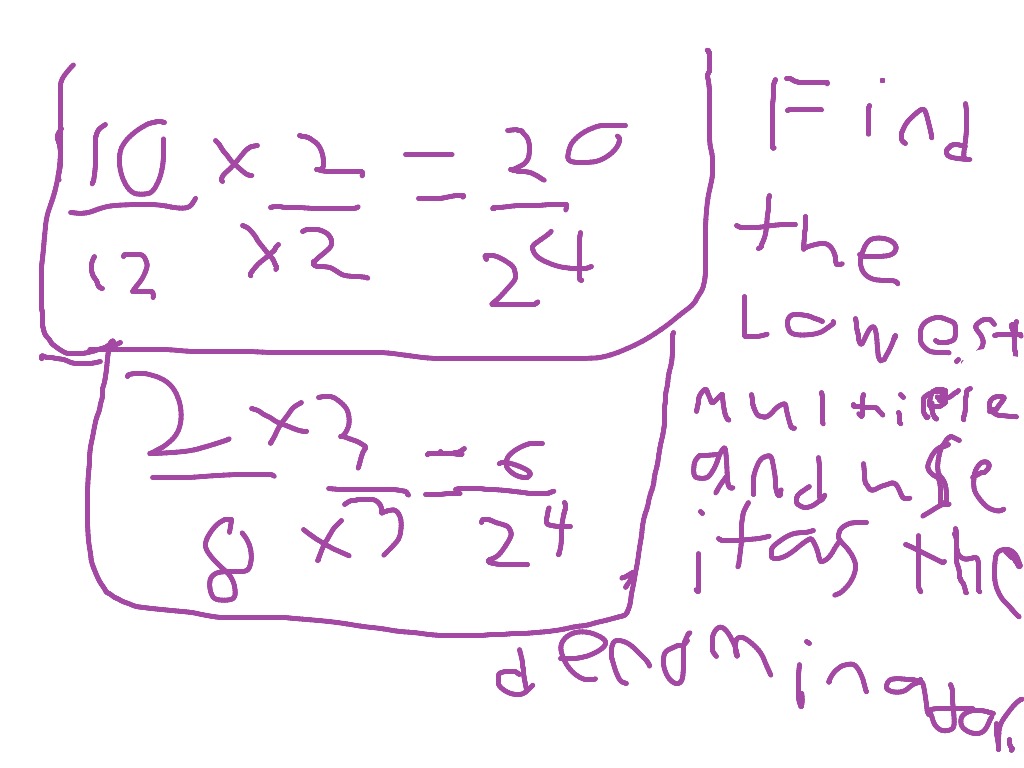 10/12 × 2/×2 = 20/24
2/8 ×3/×3 = 6/24
Find
the
Lowest
multiple
and use
it as the
denominator.